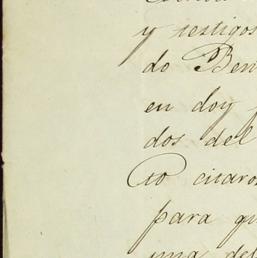 y testigos
do Ben
en doy
dos del
to citaro
para qu
una del